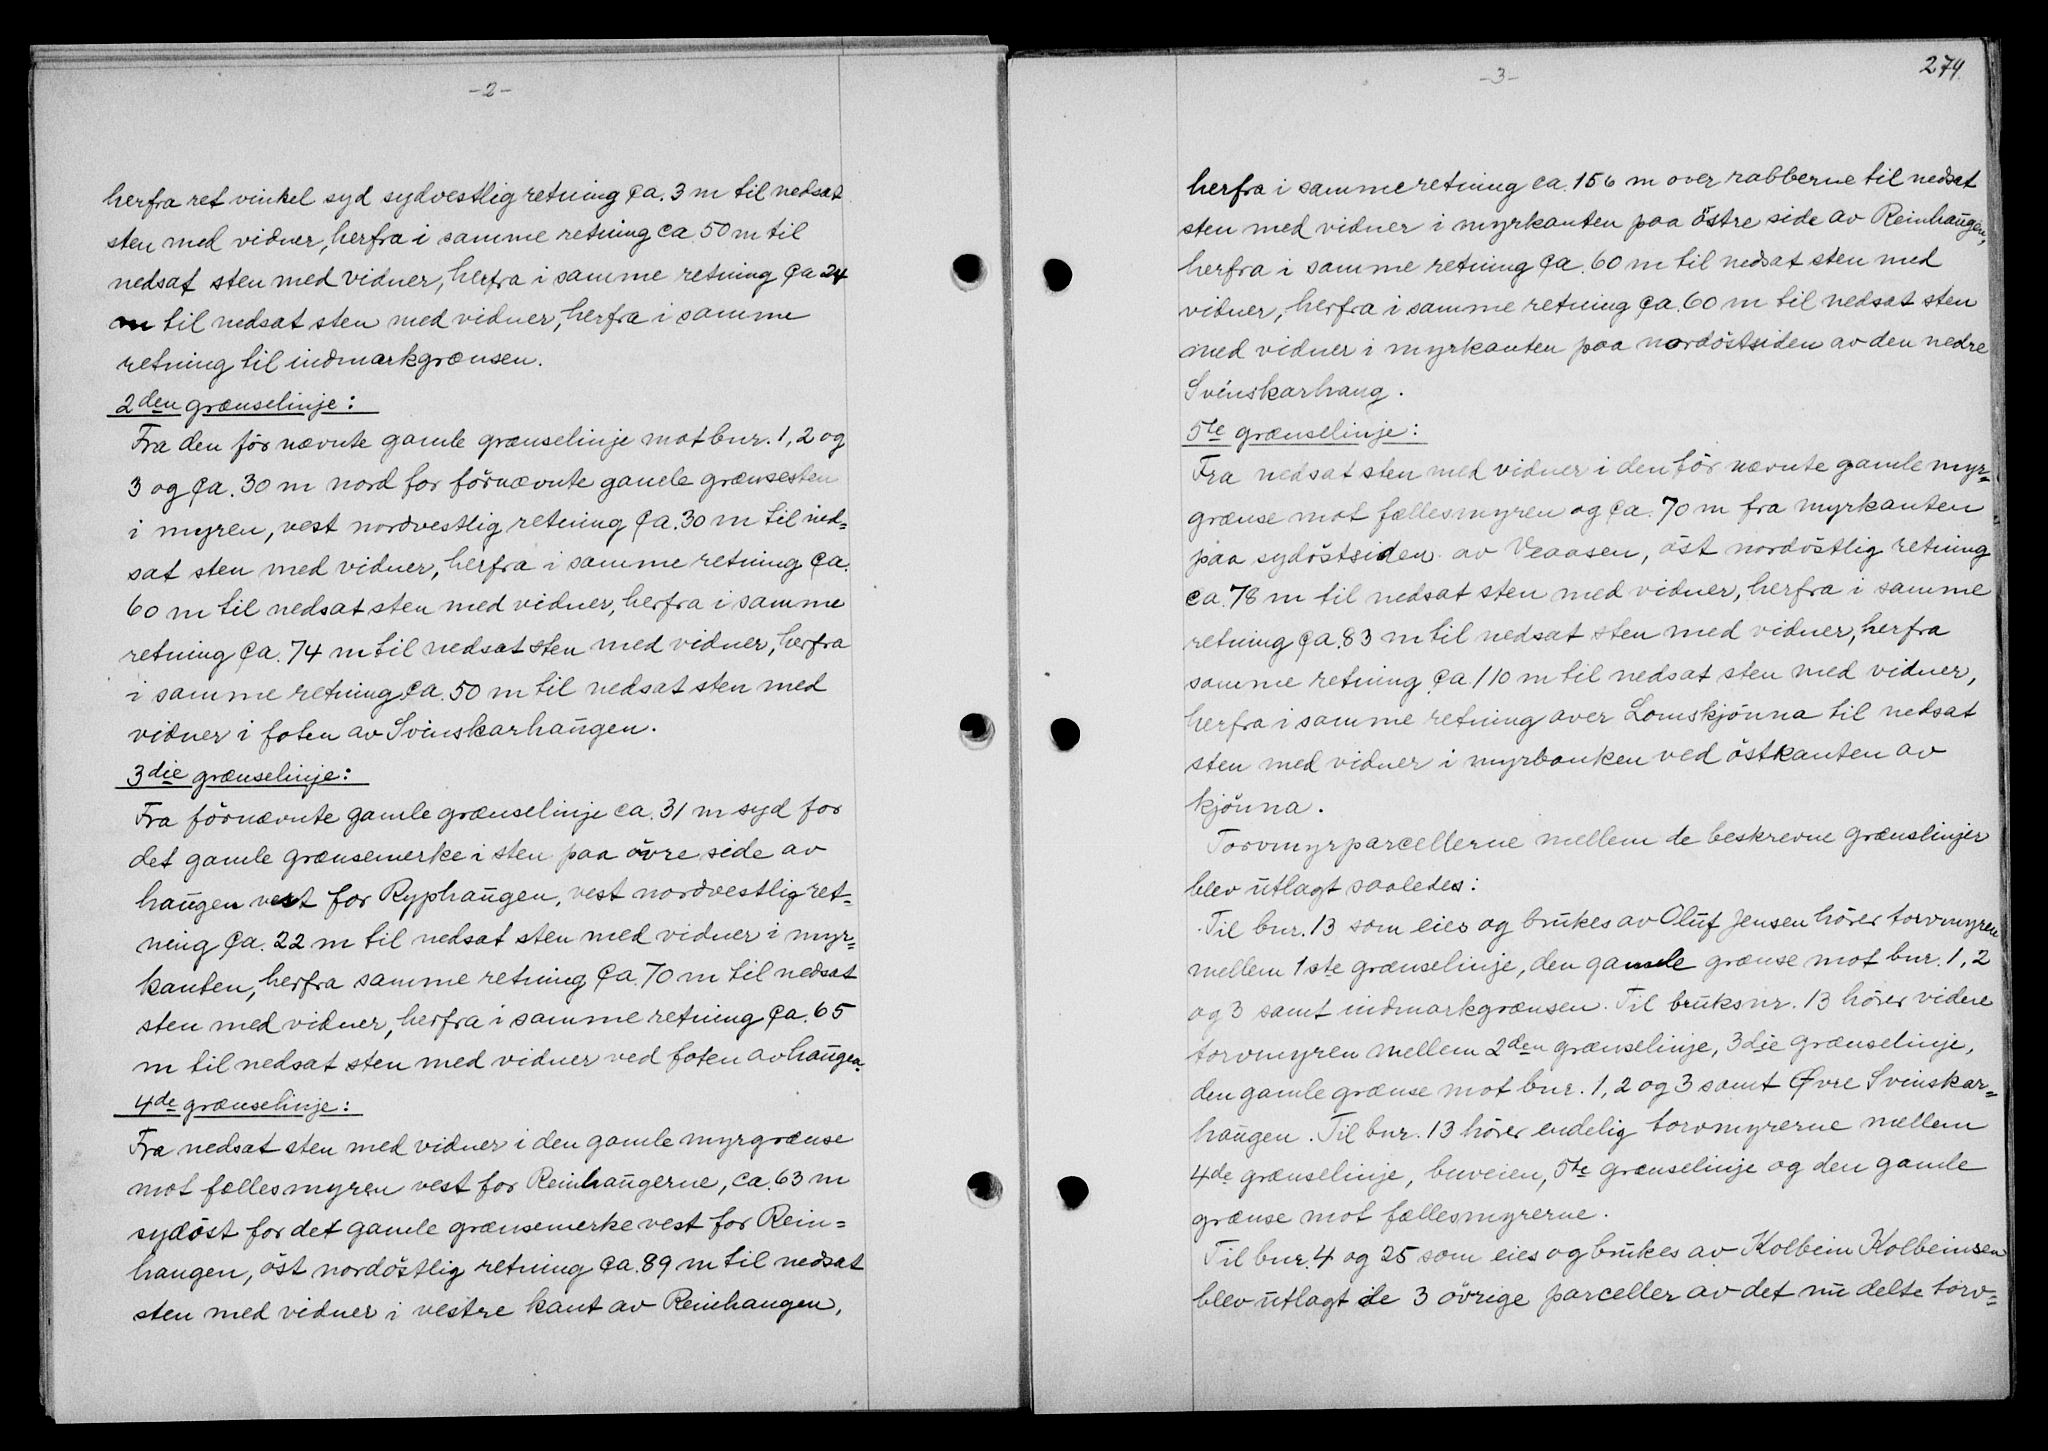 -2-
herfra ret vinkel syd sydvestlig retning ca. 3 m til nedsat
sten med vidner, herfra i samme retning ca 50 m til
nedsat sten med vidner, herfra i samme retning ca 24
m til nedsat sten med vidner, herfra i samme
retning til indmarkgrænsen.
2den grænselinje:
Fra den før nævnte gamle grænselinje mot bnr. 1, 2 og
3 og ca. 30 m nord for førnævnte gamle grænsesten
i myren, vest nordvestlig retning ca. 30 m til ned=
sat sten med vidner, herfra i samme retning ca.
60 m til nedsat sten med vidner, herfra i samme
retning ca. 74 m til nedsat sten med vidner, herfra
i samme retning ca. 50 m til nedsat sten med
vidner i foten av Svinskarhaugen.
3die grænselinje:
Fra førnævnte gamle grænselinje ca. 31 m syd for
det gamle grænsemerke i sten paa øvre side av
haugen vest for Ryphaugen, vest nordvestlig ret=
ning ca. 22 m til nedsat sten med vidner i myr=
kanten, herfra samme retning ca. 70 m til nedsat
sten med vidner, herfra i samme retning ca. 65
m til nedsat sten med vidner ved foten av haugen.
4de grænselinje:
Fra nedsat sten med vidner i den gamle myrgrænse
mot fællesmyren vest for Reinhaugerne, ca. 63 m
sydøst for det gamle grænsemerke vest for Rein=
haugen, øst nordøstlig retning ca. 89 m til nedsat
sten med vidner i vestre kant av Reinhaugen,
274.
-3-
herfra i samme retning ca. 156 m over rabberne til nedsat
sten med vidner i myrkanten paa østre side av Reinhaugen,
herfra i samme retning ca. 60 m til nedsat sten med
vidner, herfra i samme retning ca. 60 m til nedsat sten
med vidner i myrkanten paa nordøstsiden av den nedre
Svinskarhaug.
5te grænselinje:
Fra nedsat sten med vidner i den før nævnte gamle myr=
grænse mot fællesmyren og ca. 70 m fra myrkanten
paa sydøstsiden av Veaasen, øst nordøstlig retning
ca. 78 m til nedsat sten med vidner, herfra i samme
retning ca. 83 m til nedsat sten med vidner, herfra
samme retning ca 110 m til nedsat sten med vidner,
herfra i samme retning over Lomskjønna til nedsat
sten med vidner i myrbanken ved østkanten av
kjønna.
Torvmyrparcellerne mellem de beskrevne grænslinjer
blev utlagt saaledes:
Til bnr. 13 som eies og brukes av Oluf Jensen hører torvmyren
mellem 1ste grænselinje, den gamle grænse mot bnr. 1, 2
og 3 samt indmarkgrænsen. Til bruksnr. 13 hører videre
torvmyren mellem 2den grænselinje, 3die grænselinje,
den gamle grænse mot bnr. 1, 2 og 3 samt Øvre Svinskar=
haugen. Til bnr. 13 hører endelig torvmyrerne mellem
4de grænselinje, buveien, 5te grænselinje og den gamle
grænse mot fællesmyrerne.
Til bnr. 4 og 25 som eies og brukes av Kolbein Kolbeinsen
blev utlagt de 3 øvrige parceller av det nu delte torv=